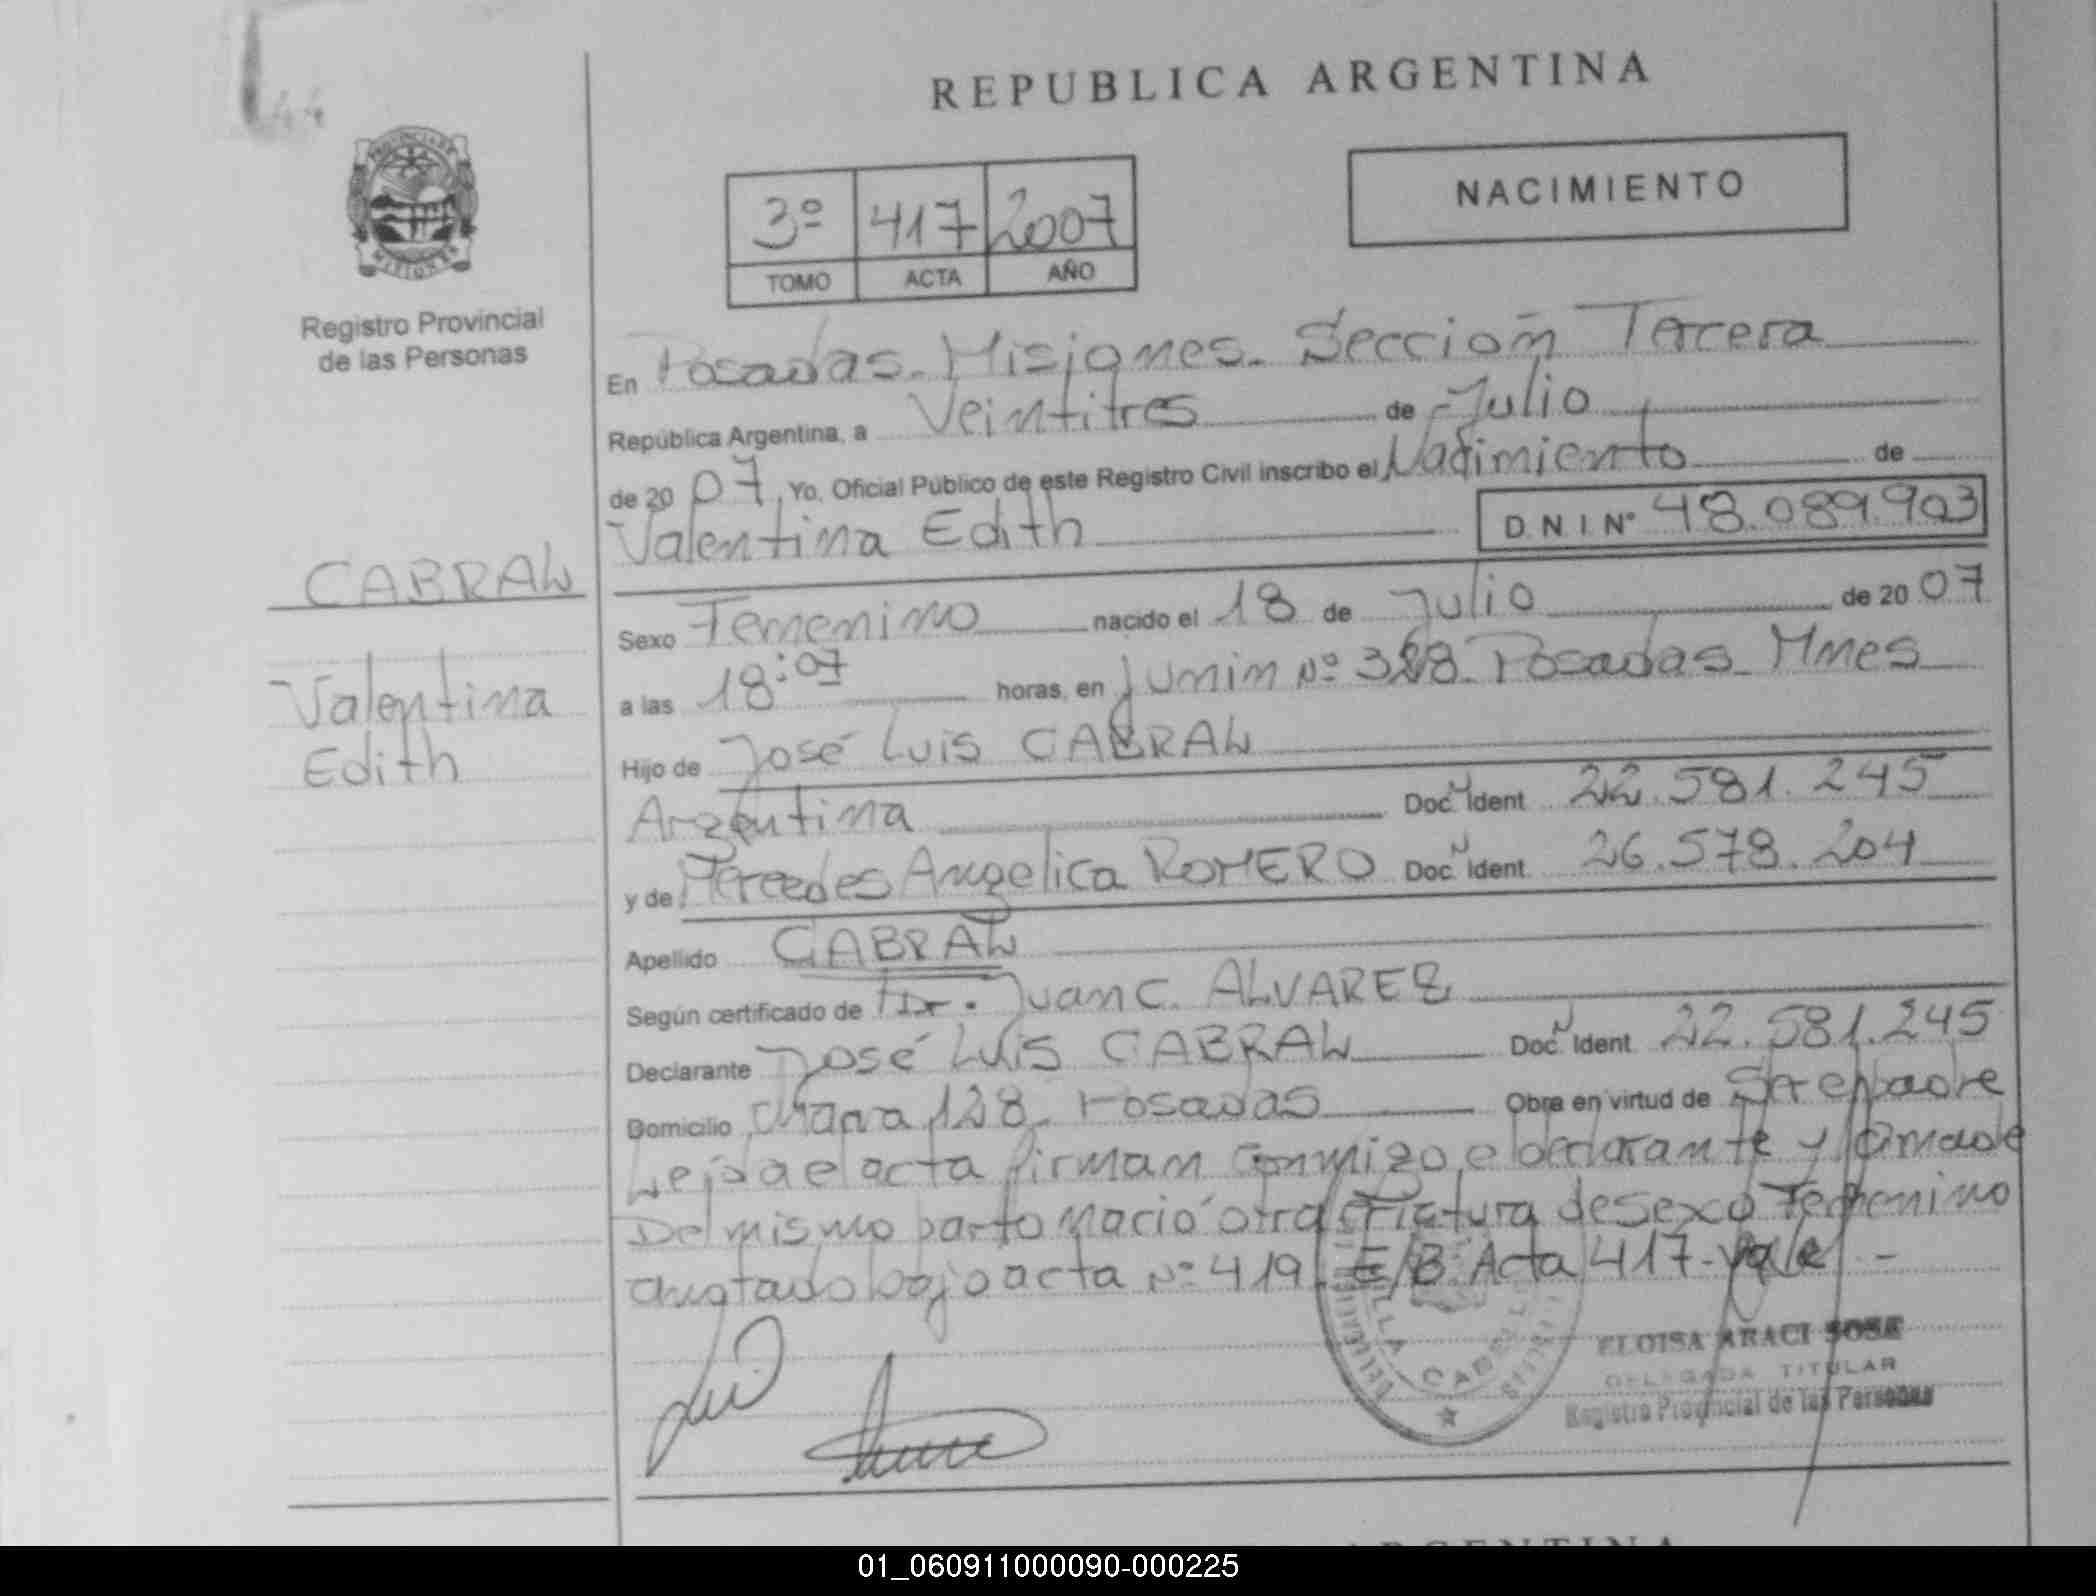 REPUBLICA ARGENTINA
PROVINCIA DE
MISIONES
Registro Provincial
de las Personas
3º 417 2007
TOMO ACTA AÑO
NACIMIENTO
En Posadas. Misiones. Sección Tercera
República Argentina, a Veintitres de Julio
de 2007, Yo, Oficial Público de este Registro Civil inscribo el Nacimiento de
Valentina Edith D.N.I Nº 48.089.903
CABRAL
Valentina
Edith
Sexo Femenino nacido el 18 de Julio de 2007
a las 18:07 horas, en Junin Nº 328. Posadas. Mnes
Hijo de José Luis CABRAL
Argentina Doc. Ident 22.581.245
y de Mercedes Angelica ROMERO Doc. Ident. 26.578.204
Apellido CABRAL
Según certificado de Dr. Juan C. ALVAREZ
Declarante José Luis CABRAL Doc. Ident 22.581.245
Domicilio 128. Posadas Obra en virtud de Ser el padre
Leida el acta firman conmigo el declarante y la madre
Del mismo parto nació otra criatura de sexo Femenino
anotado bajo acta Nº 419. E/B. Acta 417-vale -
ELOISA ARACI SOSA
DELEGADA TITULAR
Registro Provincial de las Personas
ARGENTINA
01_060911000090-000225